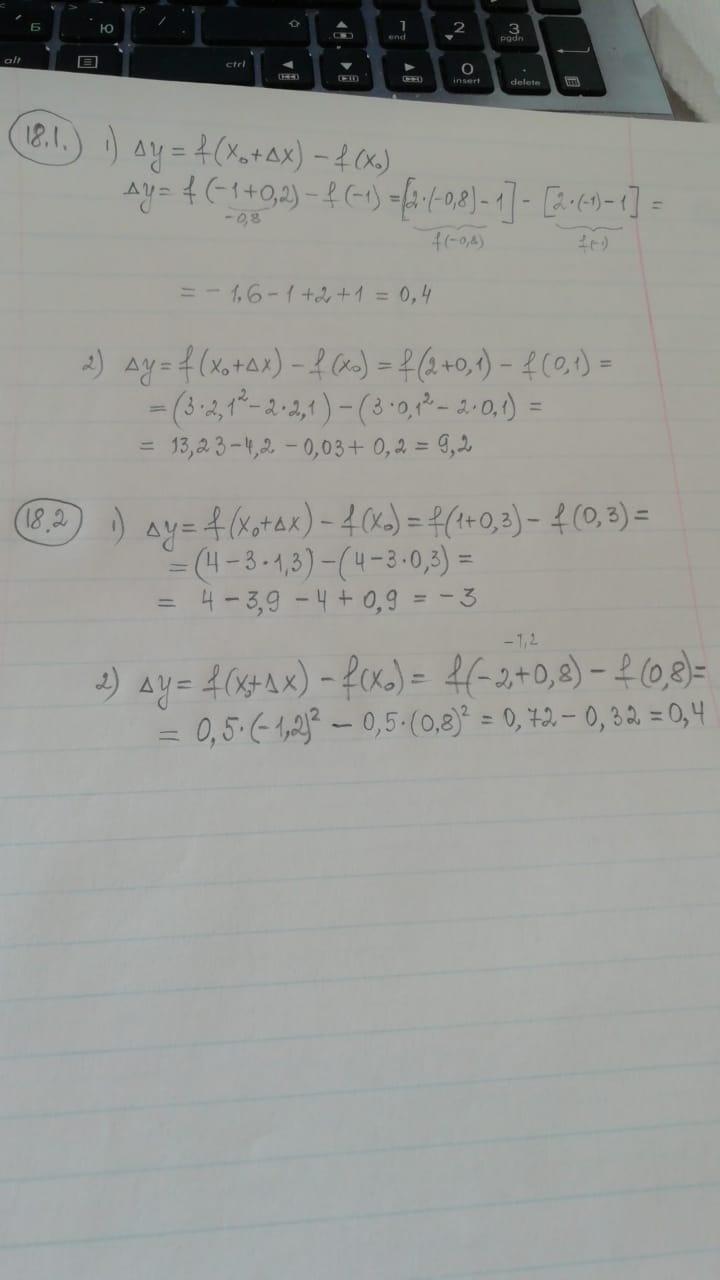 Б Ю / ⇧ ▲ 1 end 2 3 pgdn
alt ctrl ◄ ▼ ► 0 insert . delete
18.1. 1) Δy = f(x₀+Δx) − f(x₀)
Δy = f(−1+0,2) − f(−1) = [2·(−0,8)−1] − [2·(−1)−1] =
−0,8 f(−0,8) f(−1)
= − 1,6 − 1 + 2 + 1 = 0,4
2) Δy = f(x₀+Δx) − f(x₀) = f(2+0,1) − f(0,1) =
= (3·2,1² − 2·2,1) − (3·0,1² − 2·0,1) =
= 13,23 − 4,2 − 0,03 + 0,2 = 9,2
18.2 1) Δy = f(x₀+Δx) − f(x₀) = f(1+0,3) − f(0,3) =
= (4 − 3·1,3) − (4 − 3·0,3) =
= 4 − 3,9 − 4 + 0,9 = −3
−1,2
2) Δy = f(x₀+Δx) − f(x₀) = f(−2+0,8) − f(0,8) =
= 0,5·(−1,2)² − 0,5·(0,8)² = 0,72 − 0,32 = 0,4